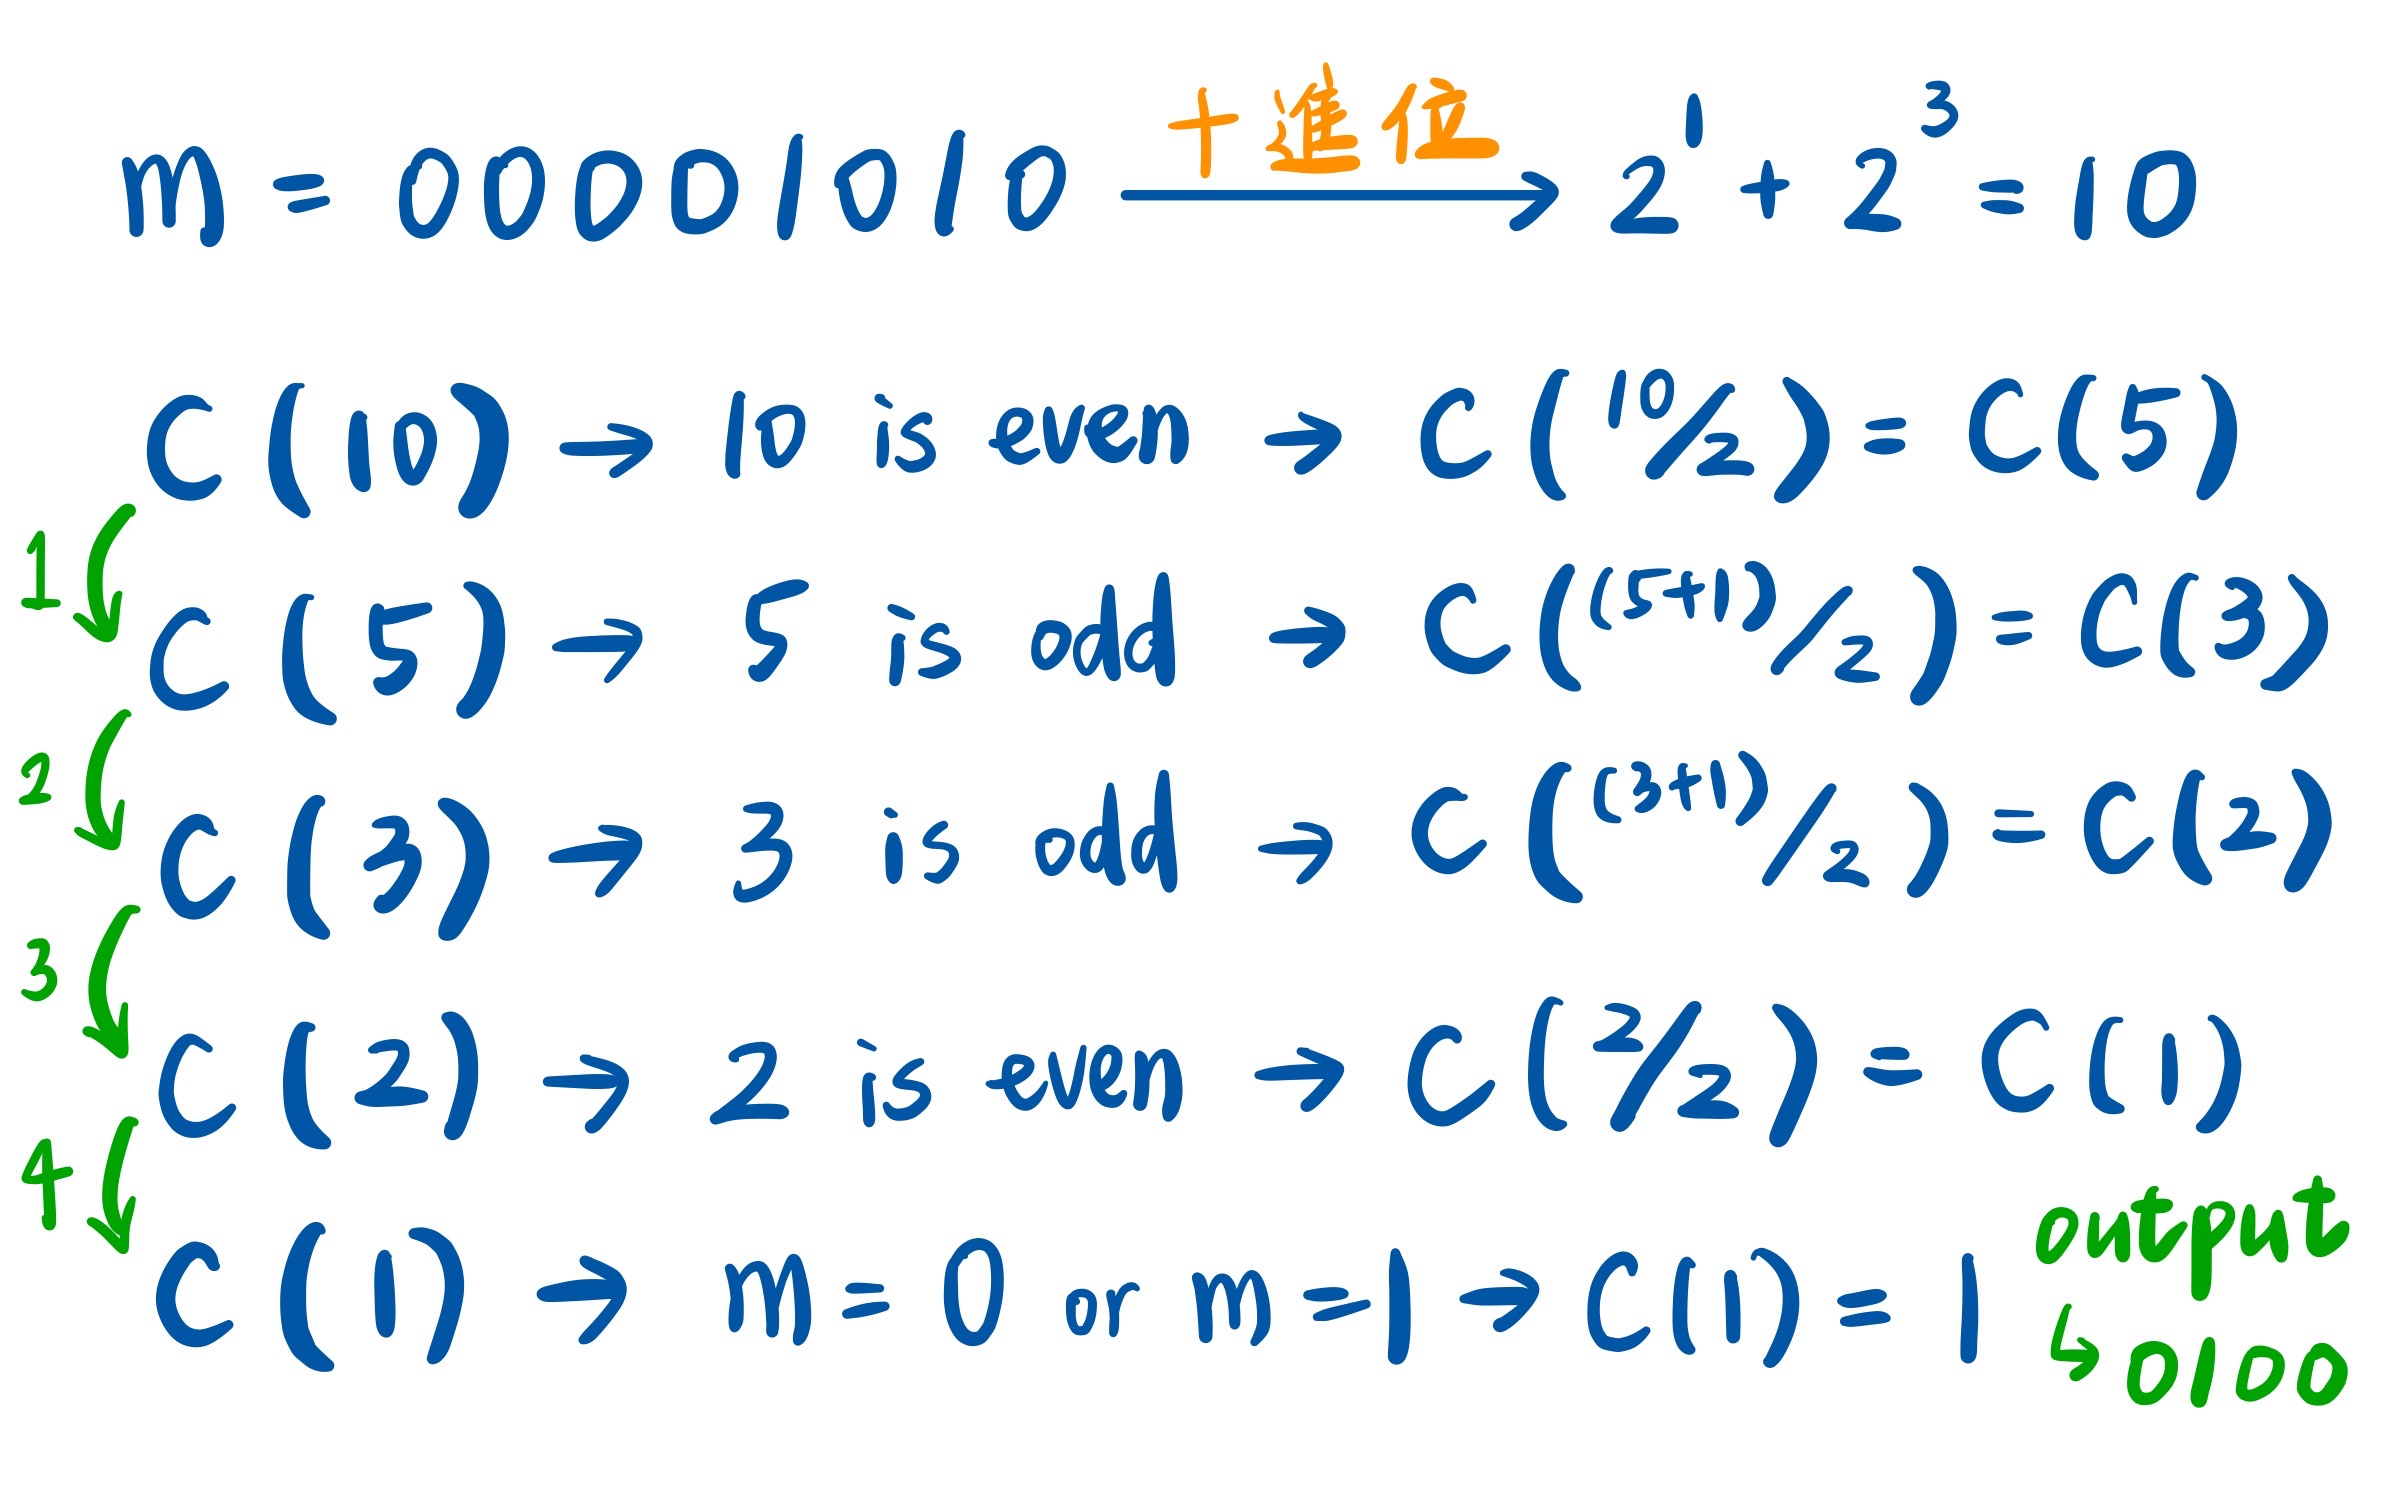 十進位
m = 00001010 → 2¹ + 2³ = 10
C (10) → 10 is even → C (10/2) = C(5)
1
C (5) → 5 is odd → C ((5+1)/2) = C(3)
2
C (3) → 3 is odd → C ((3+1)/2) = C(2)
3
C (2) → 2 is even → C (2/2) = C (1)
4
C (1) → m = 0 or m = 1 → C(1) = 1
output
↳ 0100